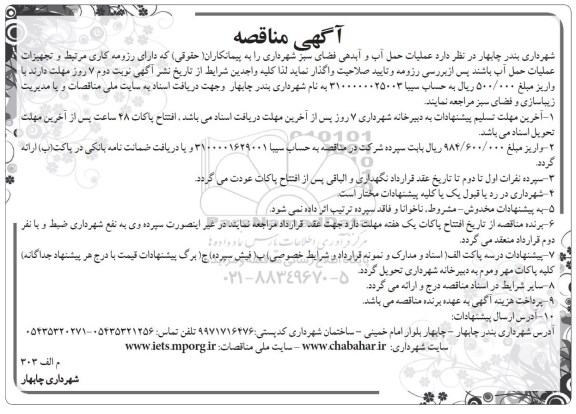 آگهی مناقصه
شهرداری بندر چابهار در نظر دارد عملیات حمل آب و آبدهی فضای سبز شهرداری را به پیمانکاران( حقوقی) که دارای رزومه کاری مرتبط و تجهیزات
عملیات حمل آب باشند پس ازبررسی رزومه وتایید صلاحیت واگذار نماید لذا کلیه واجدین شرایط از تاریخ نشر آگهی نوبت دوم ۷ روز مهلت دارند با
واریز مبلغ ۵۰۰/۰۰۰ ریال به حساب سیبا ۳۱۰۰۰۰۰۰۲۵۰۰۳ به نام شهرداری بندر چابهار وجهت دریافت اسناد به سایت ملی مناقصات و یا مدیریت
زیباسازی و فضای سبز مراجعه نمایند.
۱-آخرین مهلت تسلیم پیشنهادات به دبیرخانه شهرداری ۷ روز پس از آخرین مهلت دریافت اسناد می باشد , افتتاح پاکات ۴۸ ساعت پس از آخرین مهلت
تحویل اسناد می باشد.
۲-واریز مبلغ ۹۸۴/۶۰۰/۰۰۰ ریال بابت سپرده شرکت در مناقصه به حساب سیبا ۳۱۰۰۰۰۱۶۲۹۰۰۱ و یا دریافت ضمانت نامه بانکی در پاکت(ب) ارائه
گردد.
۳-سپرده نفرات اول تا دوم تا تاریخ عقد قرارداد نگهداری و الباقی پس از افتتاح پاکات عودت می گردد.
۴-شهرداری در رد یا قبول یک یا کلیه پیشنهادات مختار است.
۵-به پیشنهادات مخدوش- مشروط, ناخوانا و فاقد سپرده ترتیب اثر داده نمی شود.
۶-برنده مناقصه از تاریخ افتتاح پاکات یک هفته مهلت دارد جهت عقد قرارداد مراجعه نمایند در غیر اینصورت سپرده وی به نفع شهرداری ضبط و با نفر
دوم قرارداد منعقد می گردد.
۷-پیشنهادات درسه پاکت الف( اسناد و مدارک و نمونه قرارداد و شرایط خصوصی) ب( فیش سپرده) ج( برگ پیشنهادات قیمت با درج هر پیشنهاد جداگانه)
کلیه پاکات مهر وموم به دبیرخانه شهرداری تحویل گردد.
۸-سایر شرایط در اسناد مناقصه درج و ارائه می گردد.
۹-پرداخت هزینه آگهی به عهده برنده مناقصه می باشد.
۱۰-آدرس ارسال پیشنهادات:
آدرس شهرداری بندر چابهار - چابهار بلوار امام خمینی - ساختمان شهرداری کدپستی: ۹۹۷۱۷۱۶۴۷۶ تلفن تماس: ۰۵۴۳۵۳۲۱۲۵۶-۰۵۴۳۵۳۲۰۲۷۱
سایت شهرداری: www.chabahar.ir - سایت ملی مناقصات: www.iets.mporg.ir
م الف ۳۰۳
شهرداری چابهار
۰۲۱-۸۸۳۴۹۶۷۰-۵